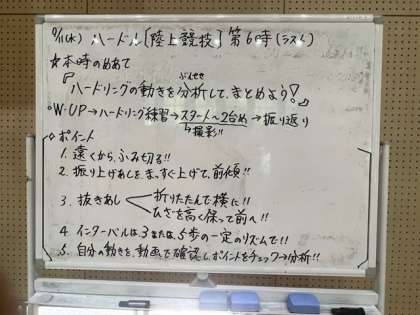 9/11(水) ハードル〔陸上競技〕第6時(ラスト)
☆本時のめあて
『ハードリングの動きを分析して、まとめよう!』
ぶんせき
○W-UP→ハードリング練習→スタート〜2台め→振り返り
↳撮影!!
◇ポイント
1. 遠くから、ふみ切る!!
2. 振り上げあしを、まっすぐ上げて、前傾!!
3. 抜きあし
折りたたんで横に!!
ひざを高く保って前へ!!
4 インターバルは、3または、5歩の一定のリズムで!!
5. 自分の動きを、動画で確認し、ポイントをチェック→分析!!